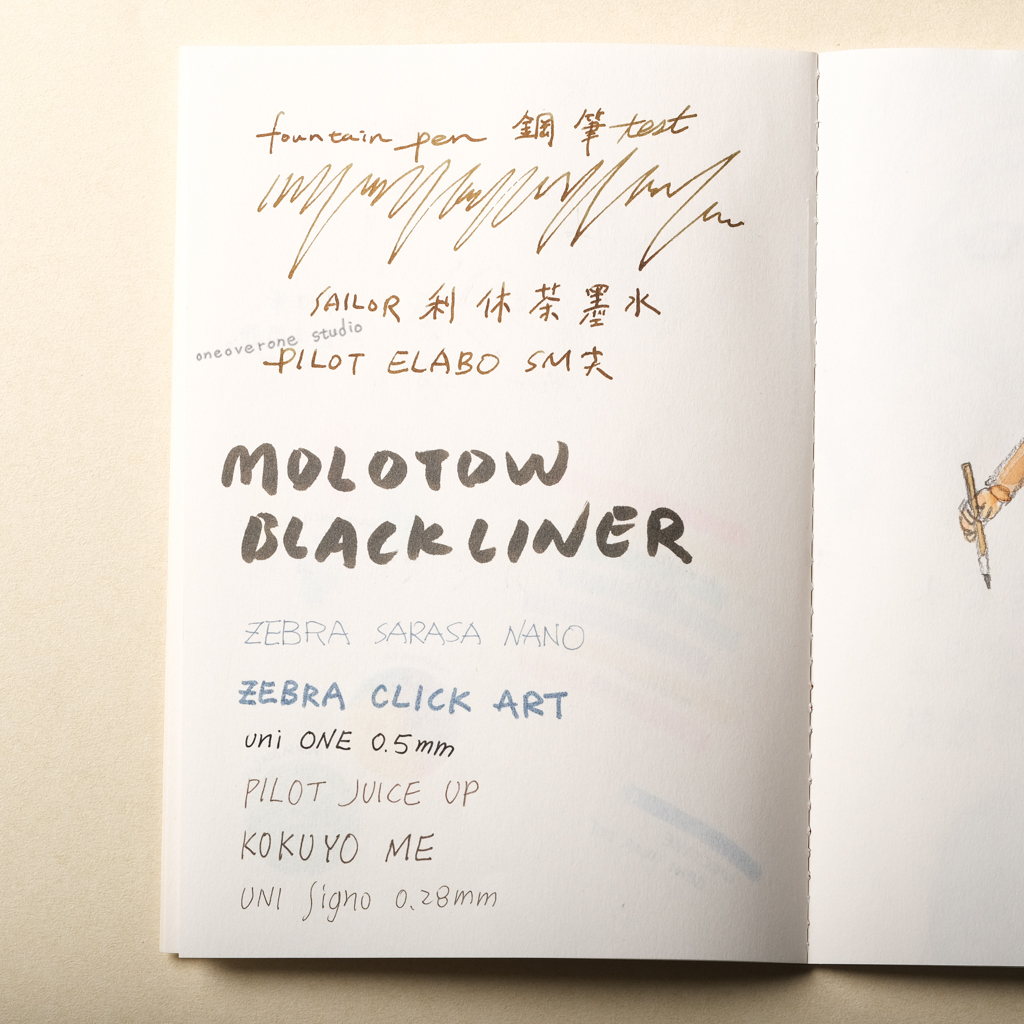 fountain pen 鋼筆 test
SAILOR 利休茶墨水
oneoverone studio
PILOT ELABO SM尖
MOLOTOW
BLACKLINER
ZEBRA SARASA NANO
ZEBRA CLICK ART
uni ONE 0.5mm
PILOT JUICE UP
KOKUYO ME
UNI Signo 0.28mm